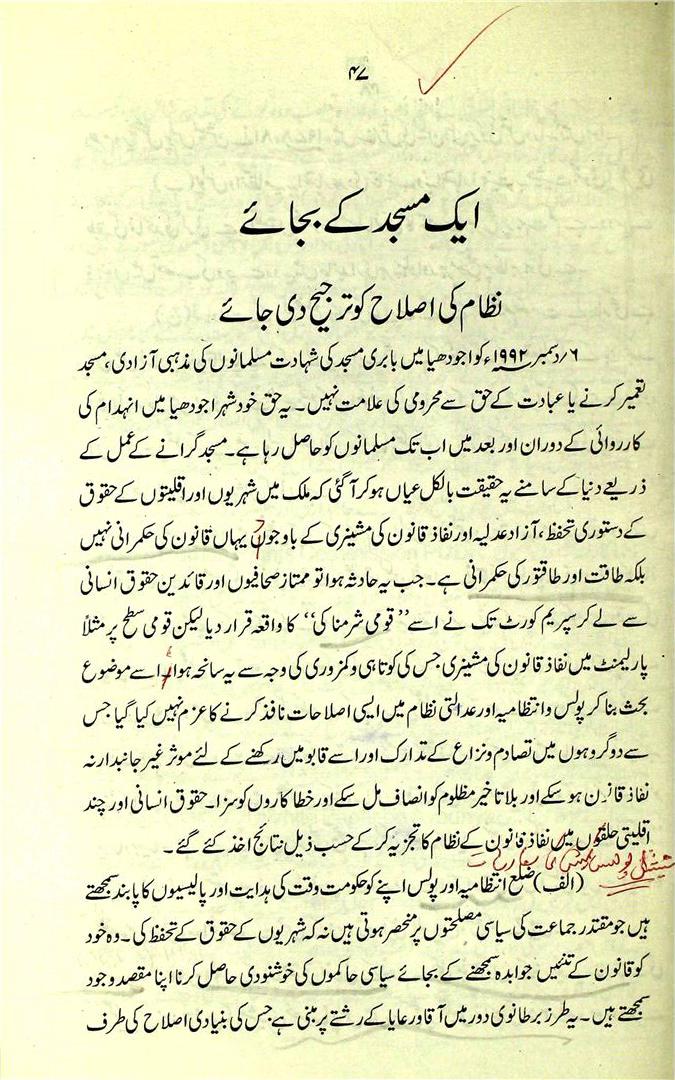 ۴۷
ایک مسجد کے بجائے
نظام کی اصلاح کو ترجیح دی جائے
۶؍دسمبر ۱۹۹۲ء کو اجودھیا میں بابری مسجد کی شہادت مسلمانوں کی مذہبی آزادی، مسجد
تعمیر کرنے یا عبادت کے حق سے محرومی کی علامت نہیں۔ یہ حق خود شہر اجودھیا میں انہدام کی
کارروائی کے دوران اور بعد میں اب تک مسلمانوں کو حاصل رہا ہے۔ مسجد گرانے کے عمل کے
ذریعے دنیا کے سامنے یہ حقیقت بالکل عیاں ہو کر آ گئی کہ ملک میں شہریوں اور اقلیتوں کے حقوق
کے دستوری تحفظ، آزاد عدلیہ اور نفاذ قانون کی مشینری کے باوجود یہاں قانون کی حکمرانی نہیں
بلکہ طاقت اور طاقتور کی حکمرانی ہے۔ جب یہ حادثہ ہوا تو ممتاز صحافیوں اور قائدین حقوق انسانی
سے لے کر سپریم کورٹ تک نے اسے ”قومی شرمناکی“ کا واقعہ قرار دیا لیکن قومی سطح پر مثلاً
پارلیمنٹ میں نفاذ قانون کی مشینری جس کی کوتاہی و کمزوری کی وجہ سے یہ سانحہ ہوا، اسے موضوع
بحث بنا کر پولس و انتظامیہ اور عدالتی نظام میں ایسی اصلاحات نافذ کرنے کا عزم نہیں کیا گیا جس
سے دو گروہوں میں تصادم و نزاع کے تدارک اور اسے قابو میں رکھنے کے لئے موثر غیر جانبدارنہ
نفاذ قانون ہو سکے اور بلا تاخیر مظلوم کو انصاف مل سکے اور خطا کاروں کو سزا۔ حقوق انسانی اور چند
اقلیتی حلقوں میں نفاذ قانون کے نظام کا تجزیہ کر کے حسب ذیل نتائج اخذ کئے گئے۔
نیشنل پولس کمیشن
(الف) ضلع انتظامیہ اور پولس اپنے کو حکومت وقت کی ہدایت اور پالیسیوں کا پابند سمجھتے
ہیں جو مقتدر جماعت کی سیاسی مصلحتوں پر منحصر ہوتی ہیں نہ کہ شہریوں کے حقوق کے تحفظ کی۔ وہ خود
کو قانون کے تئیں جوابدہ سمجھنے کے بجائے سیاسی حاکموں کی خوشنودی حاصل کرنا اپنا مقصد وجود
سمجھتے ہیں۔ یہ طرز برطانوی دور میں آقا و رعایا کے رشتے پر مبنی ہے جس کی بنیادی اصلاح کی طرف